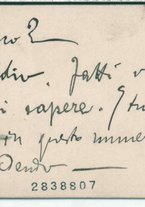 no 2
div. Fatti v
i sapere. Stu
in questo nume
Dendo —
2838807